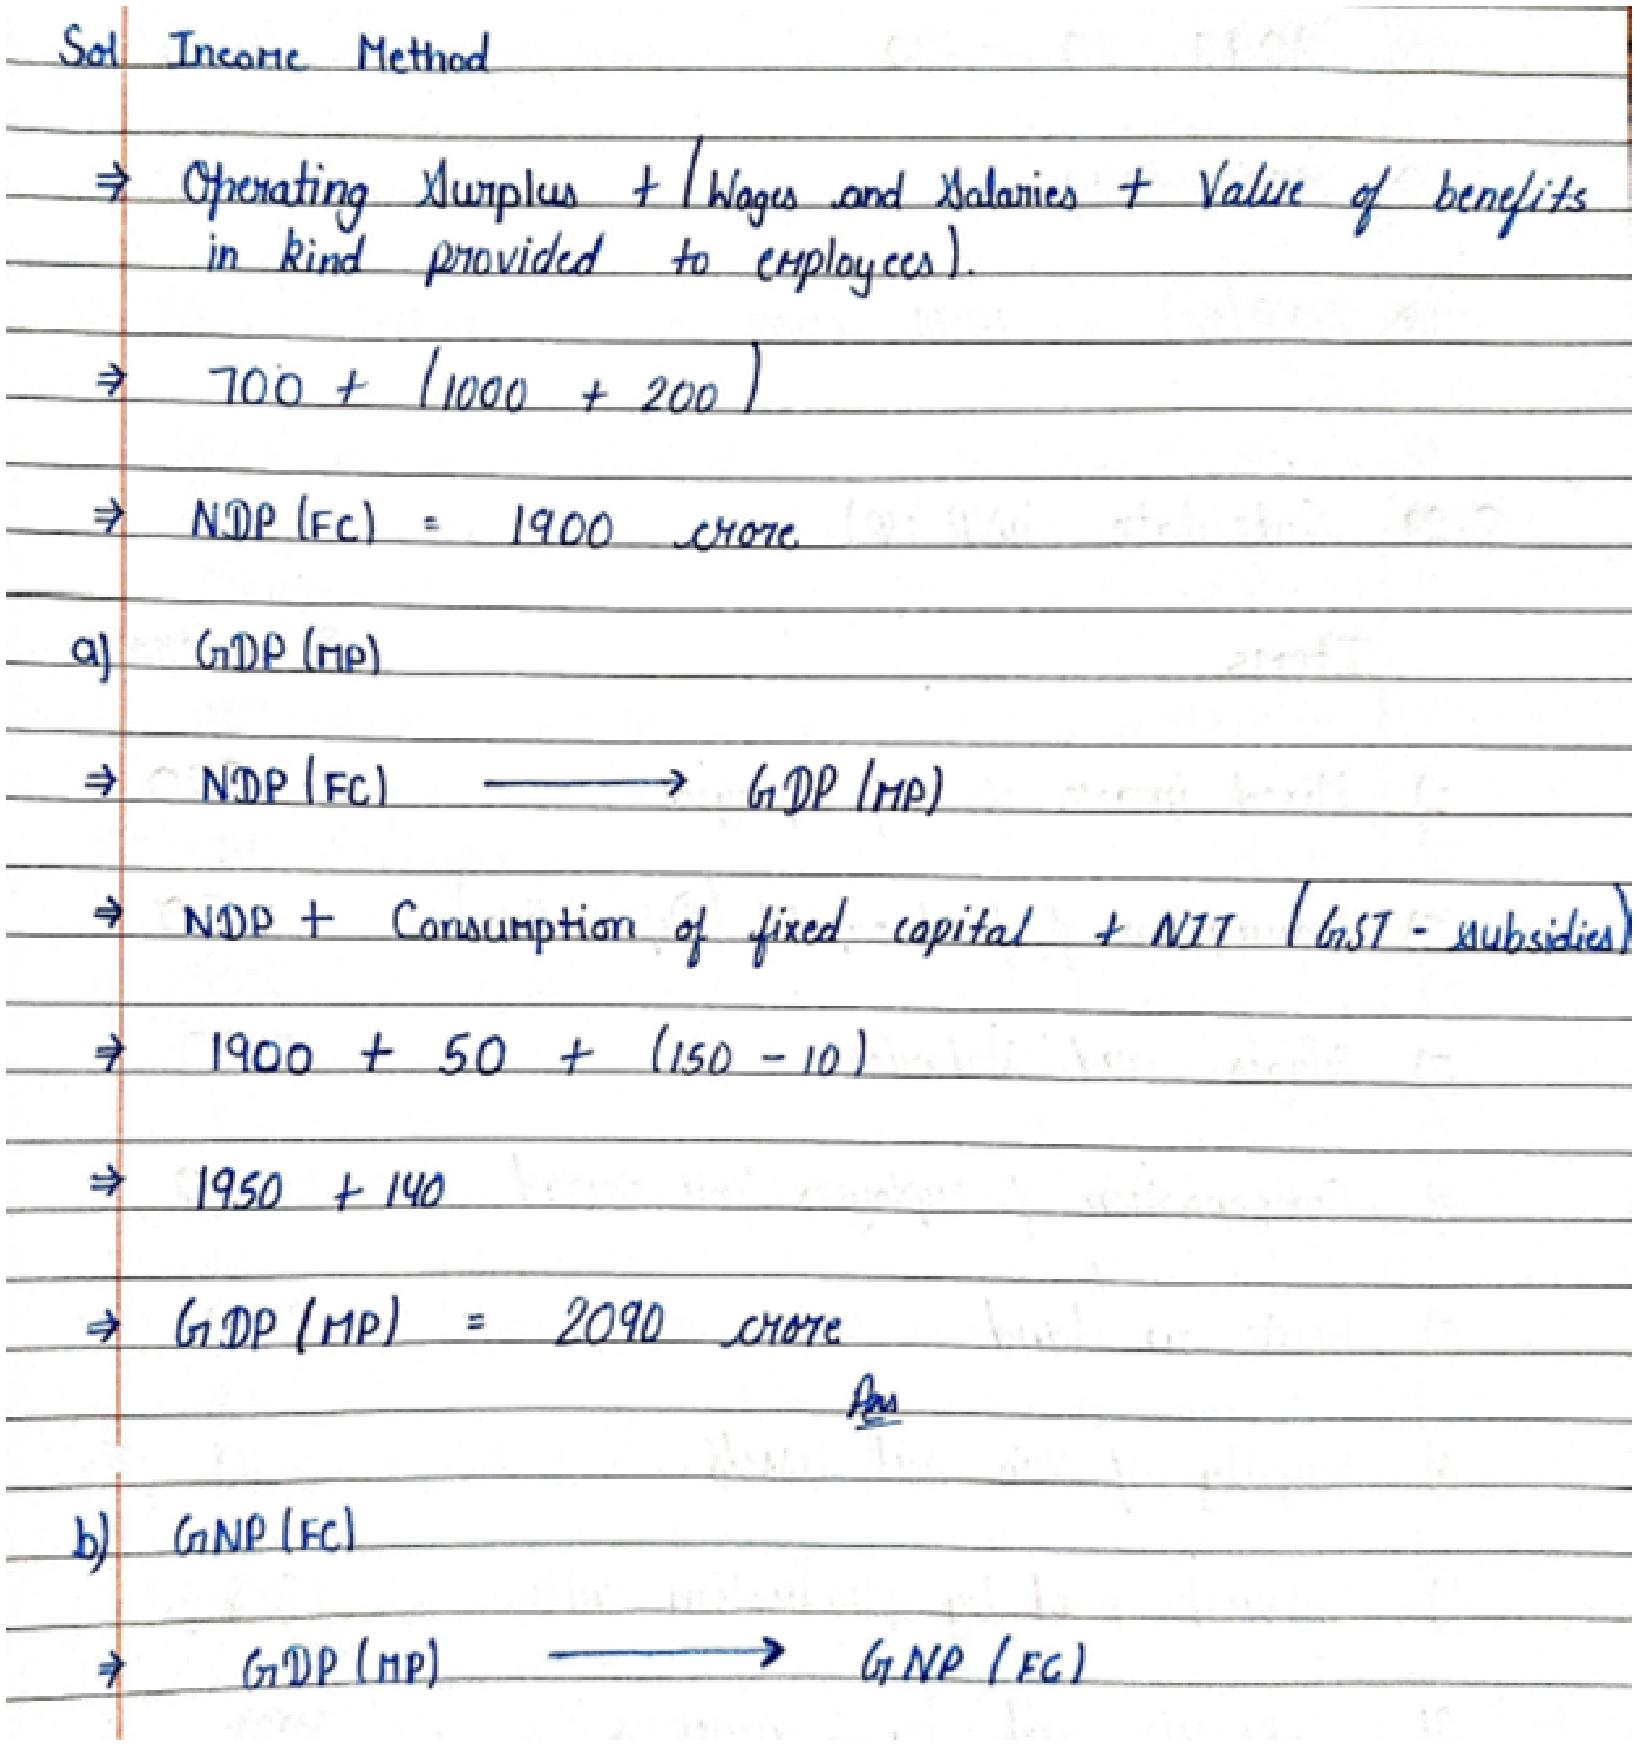 Sol Income Method
⇒ Operating Surplus + (Wages and Salaries + Value of benefits
in kind provided to employees).
⇒ 700 + (1000 + 200)
⇒ NDP (FC) = 1900 crore
a) GDP (MP)
⇒ NDP (FC) ⟶ GDP (MP)
⇒ NDP + Consumption of fixed capital + NIT (GST - subsidies)
⇒ 1900 + 50 + (150 - 10)
⇒ 1950 + 140
⇒ GDP (MP) = 2090 crore
Ans
b) GNP (FC)
⇒ GDP (MP) ⟶ GNP (FC)